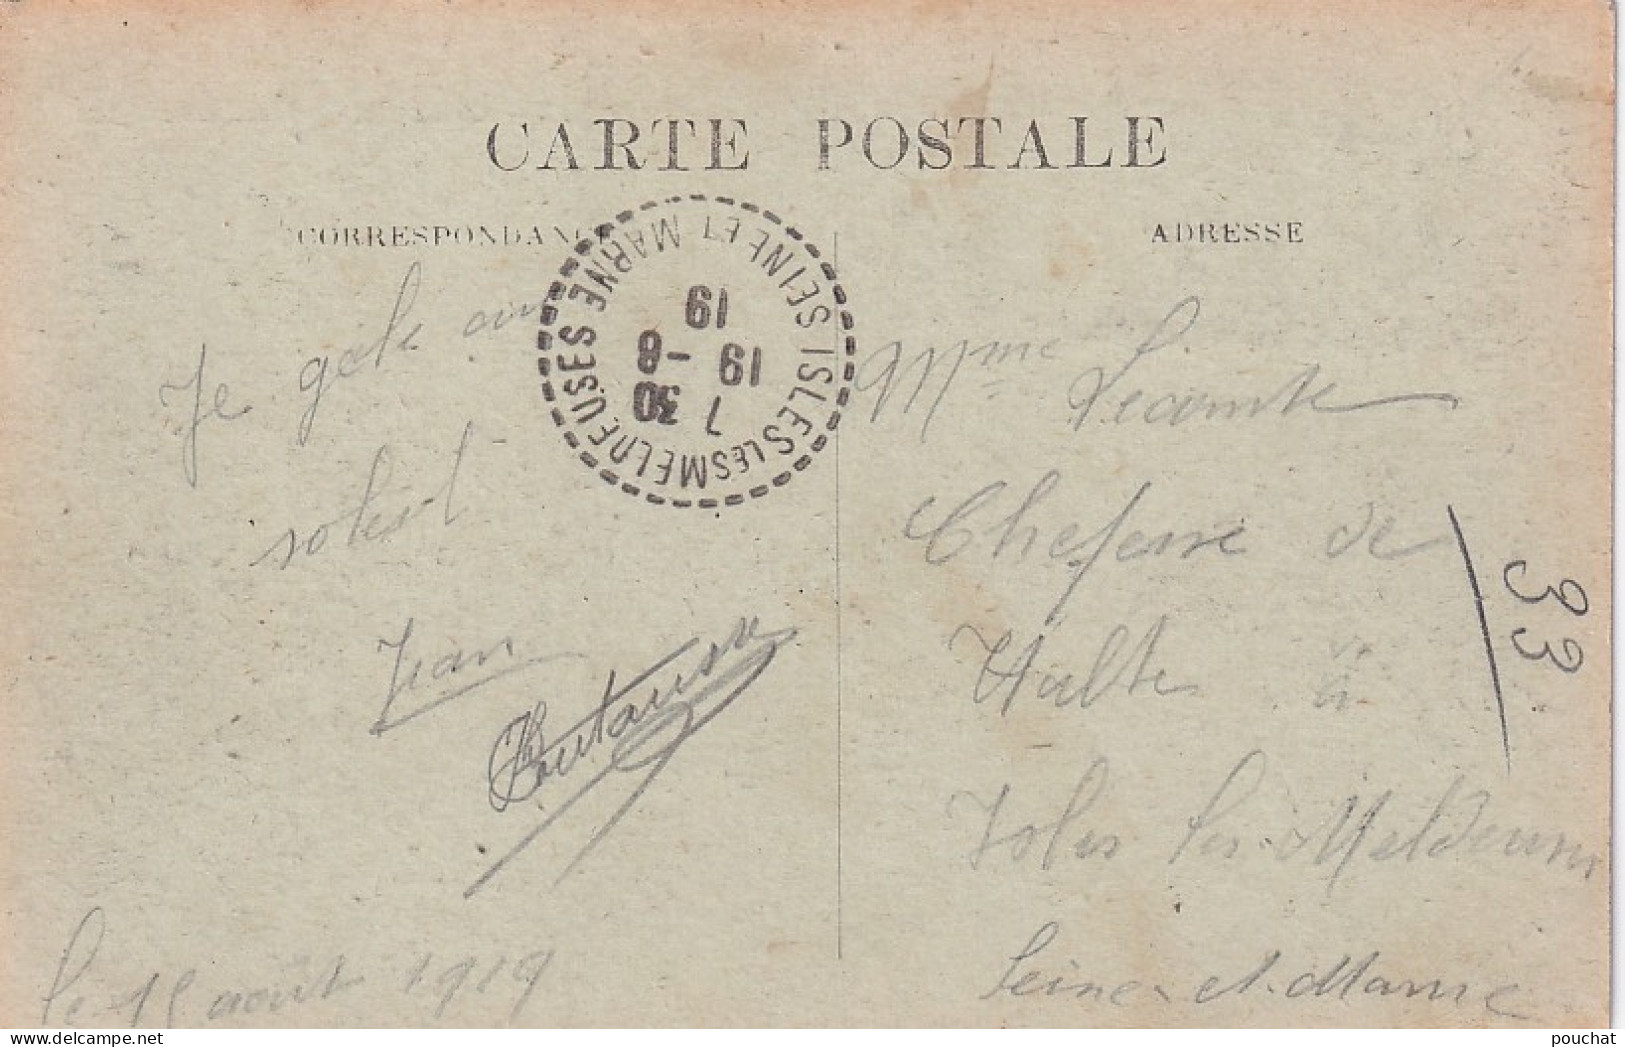 CARTE POSTALE
CORRESPONDANCE
ADRESSE
ISLES LES MELDEUSES SEINE ET MARNE
7 30
19 -8
19
Je
soleil
Jean
le 18 août 1919
Mme Lecomte
Cheferre de
Halte à
Isles les Meldeuses
Seine et Marne
33
pouchat